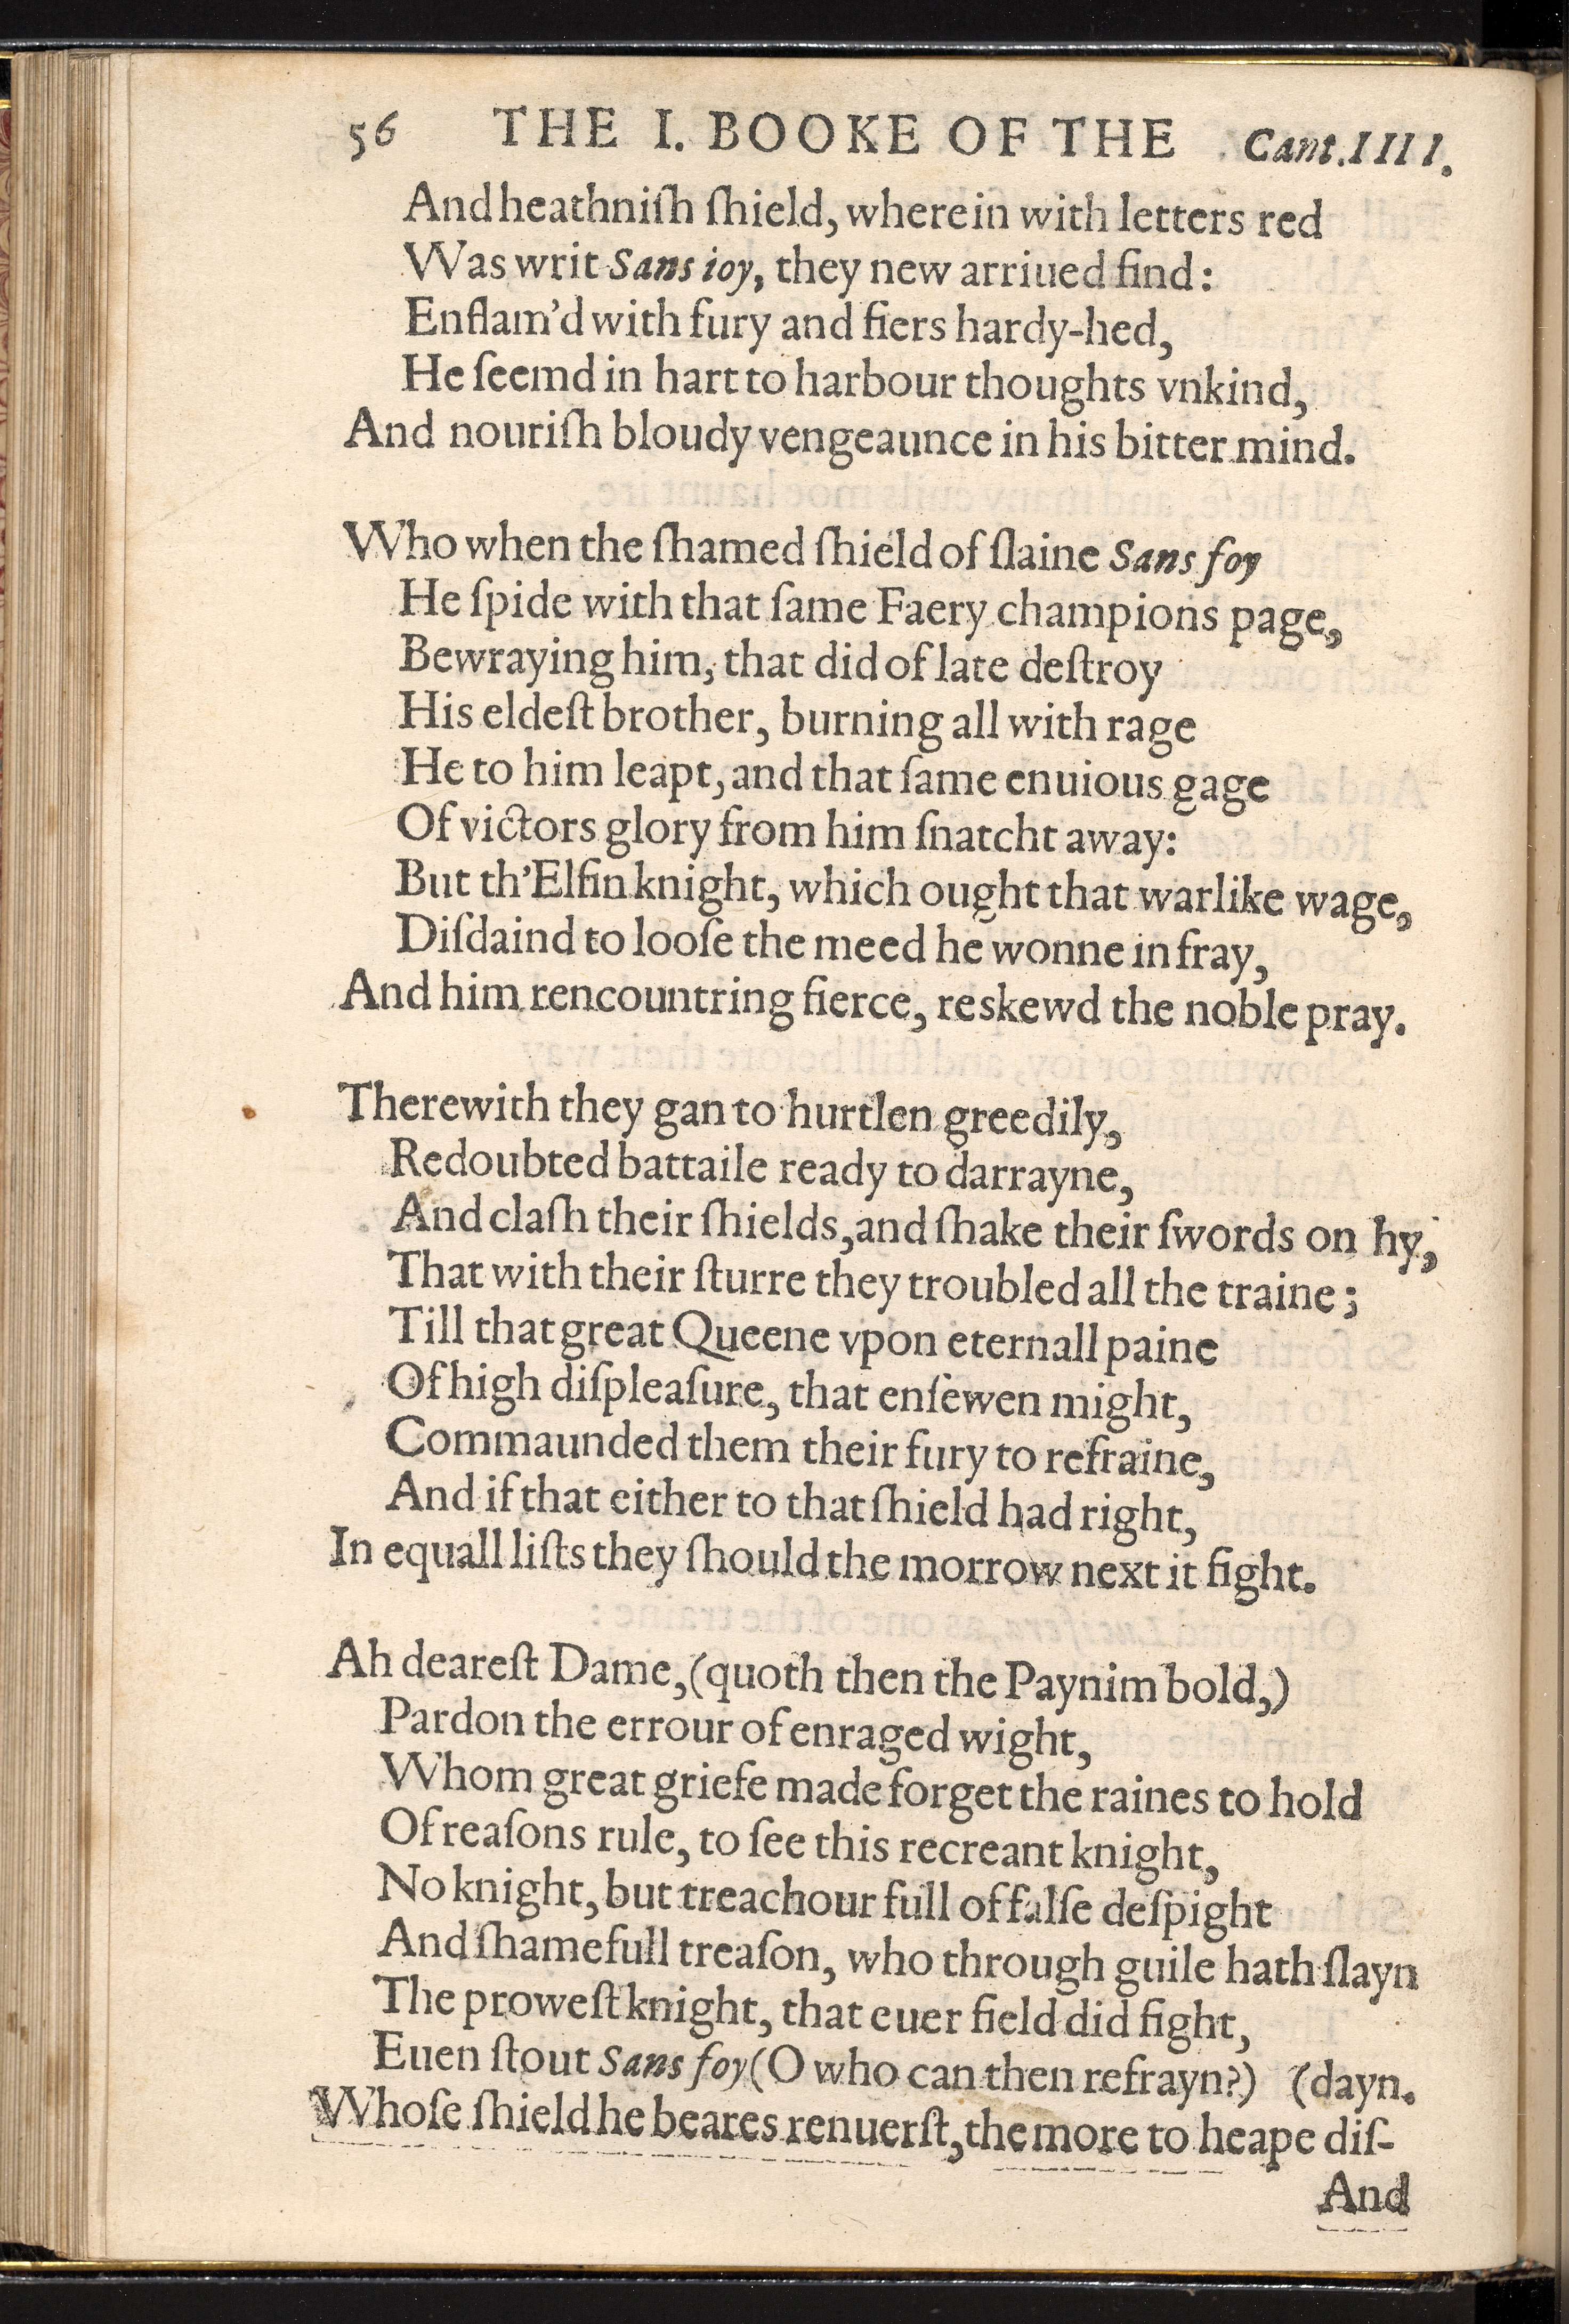 56 THE I. BOOKE OF THE Cant.IIII.
And heathniſh ſhield, wherein with letters red
Was writ Sans ioy, they new arriued find:
Enflam'd with fury and fiers hardy-hed,
He ſeemd in hart to harbour thoughts vnkind,
And nouriſh bloudy vengeaunce in his bitter mind.

Who when the ſhamed ſhield of ſlaine Sans foy
He ſpide with that ſame Faery champions page,
Bewraying him, that did of late deſtroy
His eldeſt brother, burning all with rage
He to him leapt, and that ſame enuious gage
Of victors glory from him ſnatcht away:
But th'Elfin knight, which ought that warlike wage,
Diſdaind to looſe the meed he wonne in fray,
And him rencountring fierce, reskewd the noble pray.

Therewith they gan to hurtlen greedily,
Redoubted battaile ready to darrayne,
And claſh their ſhields, and ſhake their ſwords on hy,
That with their ſturre they troubled all the traine;
Till that great Queene vpon eternall paine
Of high diſpleaſure, that enſewen might,
Commaunded them their fury to refraine,
And if that either to that ſhield had right,
In equall liſts they ſhould the morrow next it fight.

Ah deareſt Dame, (quoth then the Paynim bold,)
Pardon the errour of enraged wight,
Whom great griefe made forget the raines to hold
Of reaſons rule, to ſee this recreant knight,
No knight, but treachour full of falſe deſpight
And ſhamefull treaſon, who through guile hath ſlayn
The proweſt knight, that euer field did fight,
Euen ſtout Sans foy (O who can then refrayn?) (dayn.
Whoſe ſhield he beares renuerſt, the more to heape diſ-
And